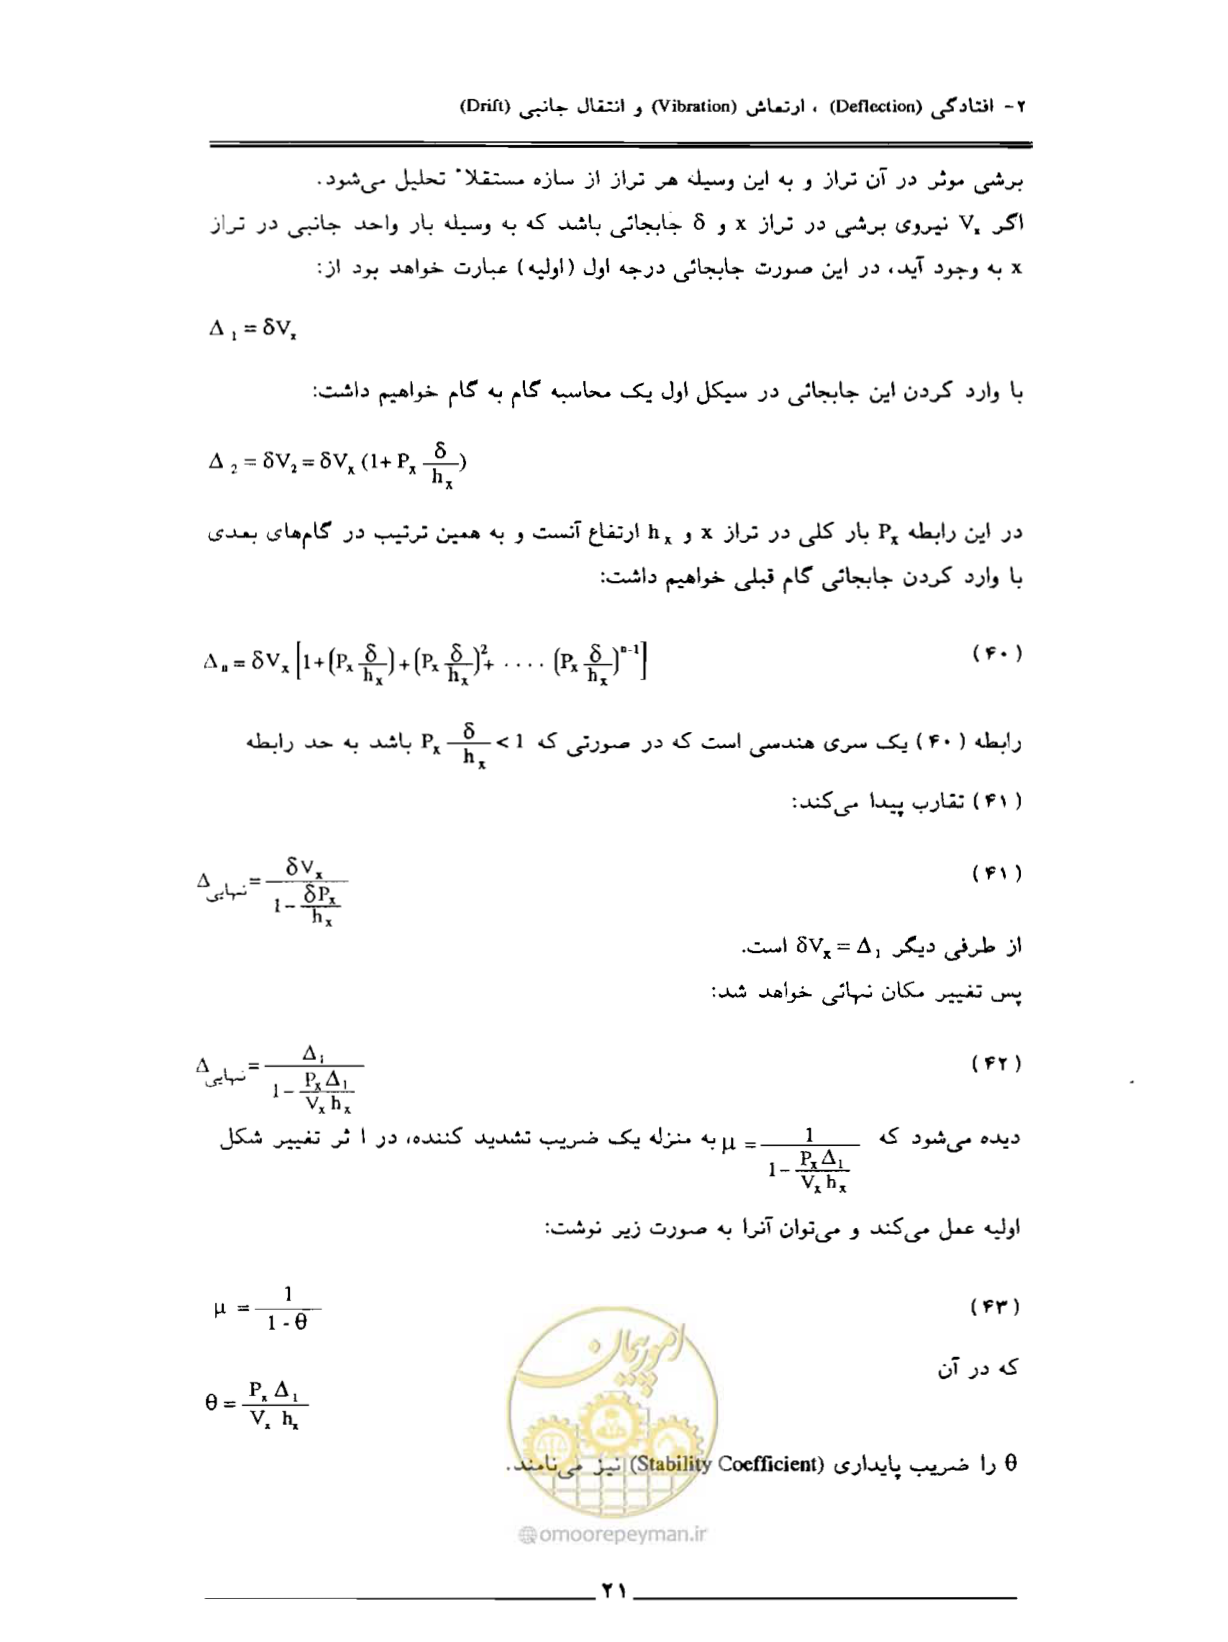 ۲- افتادگی (Deflection) ، ارتعاش (Vibration) و انتقال جانبی (Drift)
برشی موثر در آن تراز و به این وسیله هر تراز از سازه مستقلاً تحلیل می‌شود.
اگر Vₓ نیروی برشی در تراز x و δ جابجائی باشد که به وسیله بار واحد جانبی در تراز
x به وجود آید، در این صورت جابجائی درجه اول (اولیه) عبارت خواهد بود از:
Δ₁ = δVₓ
با وارد کردن این جابجائی در سیکل اول یک محاسبه گام به گام خواهیم داشت:
Δ₂ = δV₂ = δVₓ (1+ Pₓ δ/hₓ)
در این رابطه Pₓ بار کلی در تراز x و hₓ ارتفاع آنست و به همین ترتیب در گام‌های بعدی
با وارد کردن جابجائی گام قبلی خواهیم داشت:
Δₙ = δVₓ [1+(Pₓ δ/hₓ)+(Pₓ δ/hₓ)²+ .... (Pₓ δ/hₓ)ⁿ⁻¹] (۴۰)
رابطه (۴۰) یک سری هندسی است که در صورتی که Pₓ δ/hₓ < 1 باشد به حد رابطه
(۴۱) تقارب پیدا می‌کند:
Δنهایی = δVₓ / (1 - δPₓ/hₓ) (۴۱)
از طرفی دیگر δVₓ = Δ₁ است.
پس تغییر مکان نهائی خواهد شد:
Δنهایی = Δ₁ / (1 - PₓΔ₁/Vₓhₓ) (۴۲)
دیده می‌شود که μ = 1 / (1 - PₓΔ₁/Vₓhₓ) به منزله یک ضریب تشدید کننده، در ا ثر تغییر شکل
اولیه عمل می‌کند و می‌توان آنرا به صورت زیر نوشت:
μ = 1 / (1 - θ) (۴۳)
که در آن
θ = Pₓ Δ₁ / Vₓ hₓ
θ را ضریب پایداری (Stability Coefficient) نیز می‌نامند.
امور پیمان
@omoorepeyman.ir
۲۱